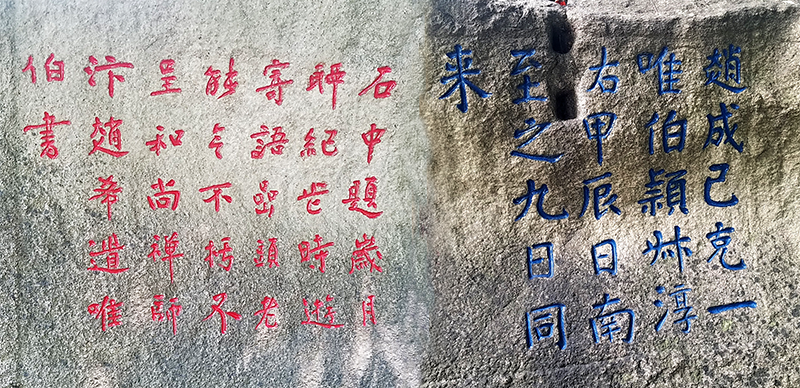 石中題歲月
聊紀此時遊
寄語喦頭老
能令不朽不
呈和尚禅師
汴趙希遣唯
伯書
趙成己克一
唯伯穎叔淳
右甲辰日南
至之九日同
来